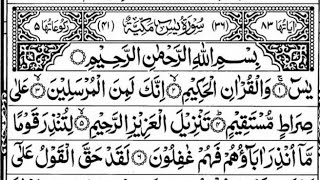 اٰيَاتُهَا ٨٣ (٣٦) سُوْرَةُ يٰسٓ مَكِّيَّةٌ (٤١) رُكُوْعَاتُهَا ٥
بِسْمِ اللّٰهِ الرَّحْمٰنِ الرَّحِيْمِ
يٰسٓ ۚ۝١ وَالْقُرْاٰنِ الْحَكِيْمِ ۙ۝٢ اِنَّكَ لَمِنَ الْمُرْسَلِيْنَ ۙ۝٣ عَلٰى
صِرَاطٍ مُّسْتَقِيْمٍ ؕ۝٤ تَنْزِيْلَ الْعَزِيْزِ الرَّحِيْمِ ۙ۝٥ لِتُنْذِرَ قَوْمًا
مَّاۤ اُنْذِرَ اٰبَآؤُهُمْ فَهُمْ غٰفِلُوْنَ ۝٦ لَقَدْ حَقَّ الْقَوْلُ عَلٰٓى